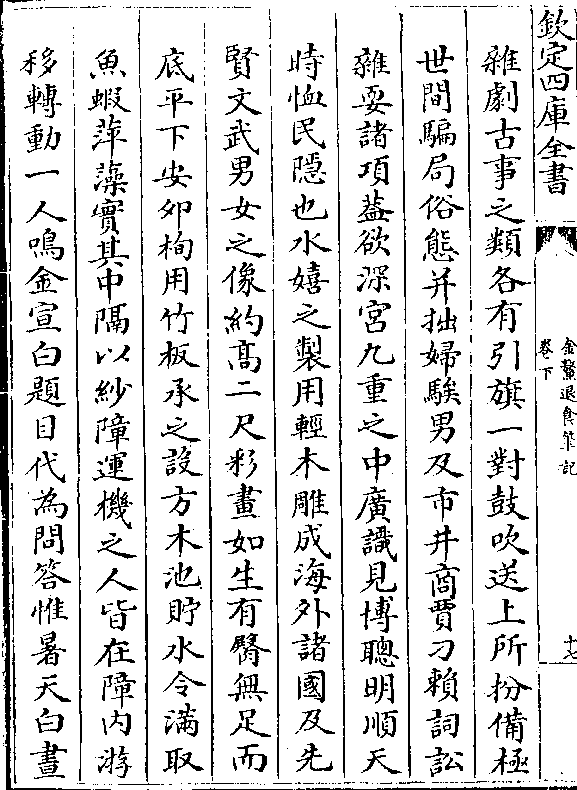 欽定四庫全書
金鰲退食筆記
卷下
十七
雜劇古事之類各有引旗一對鼓吹送上所扮備極
世間騙局俗態并拙婦騃男及市井商賈刁賴詞訟
雜耍諸項葢欲深宮九重之中廣識見博聰明順天
時恤民隱也水嬉之製用輕木雕成海外諸國及先
賢文武男女之像約髙二尺彩畫如生有臋無足而
底平下安卯栒用竹板承之設方木池貯水令滿取
魚蝦萍藻實其中隔以紗障運機之人皆在障内游
移轉動一人鳴金宣白題目代為問答惟暑天白晝